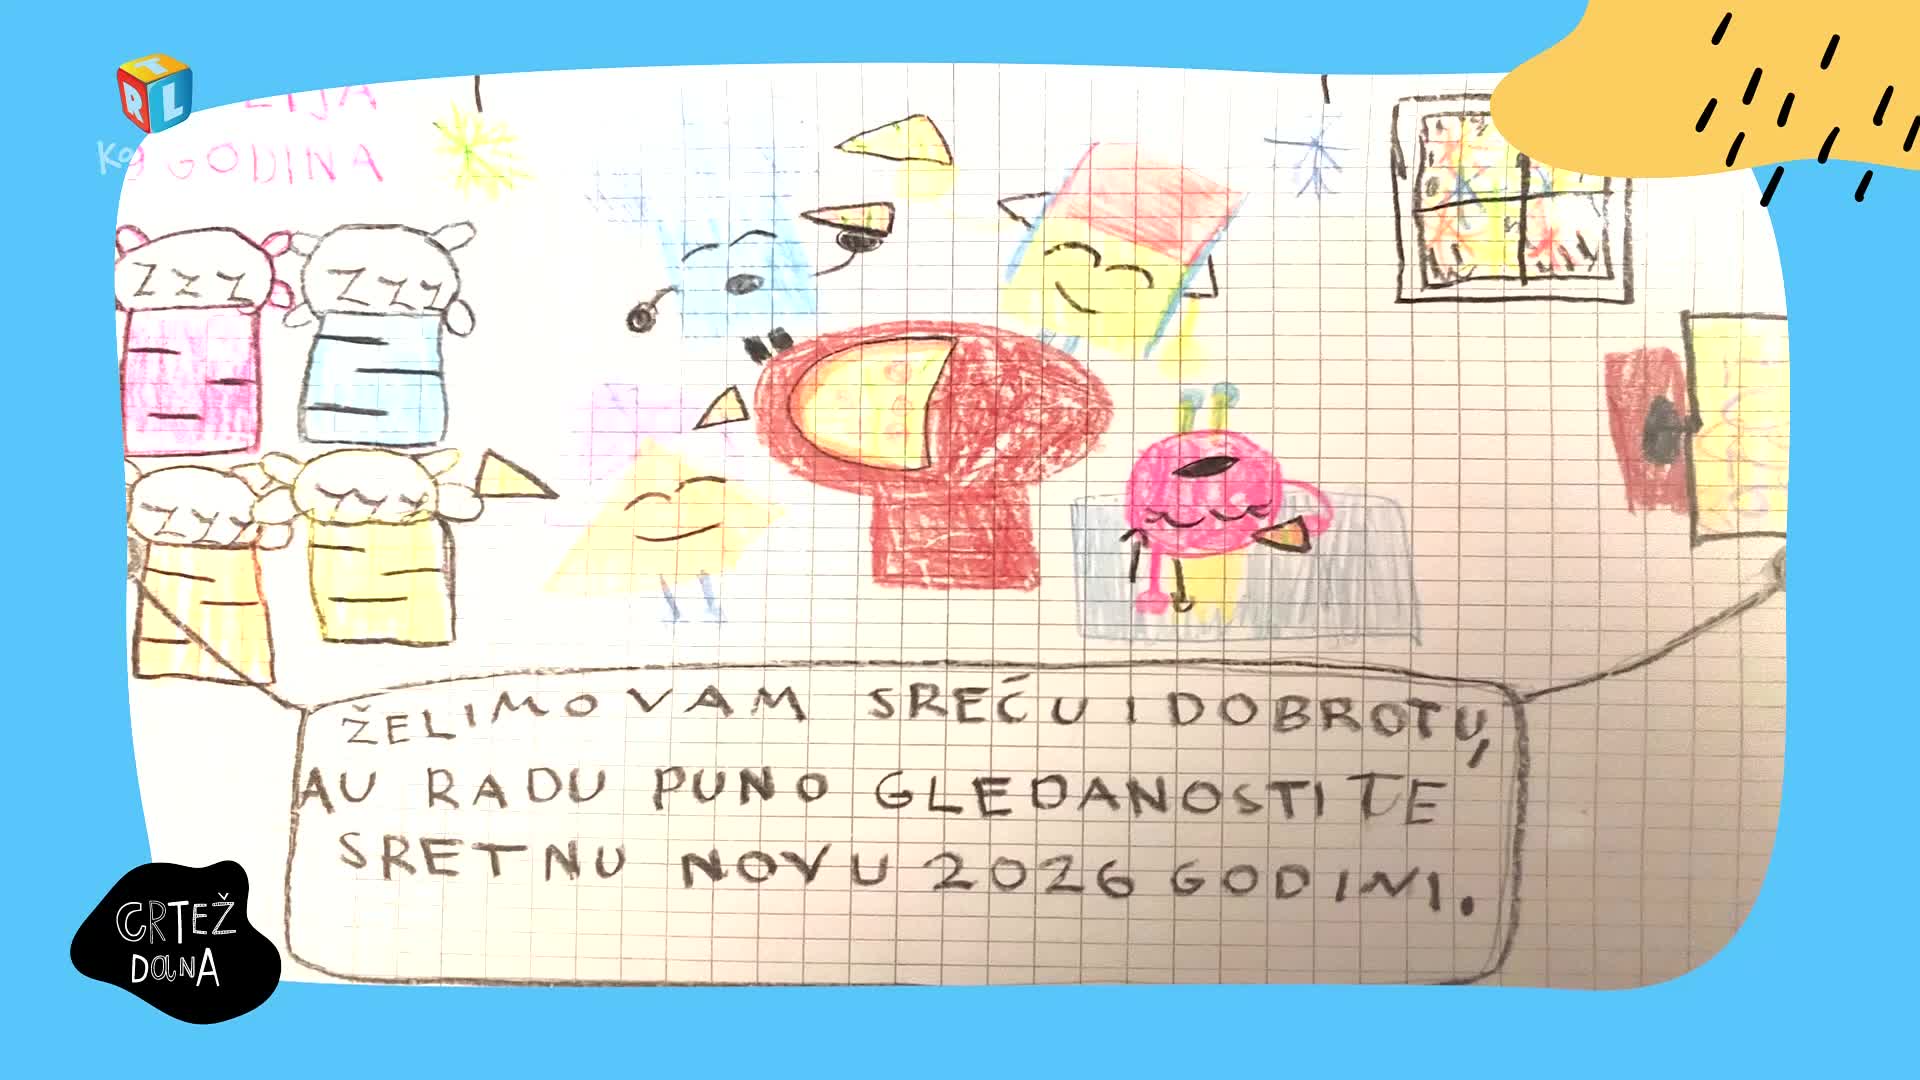 RTL
GODINA
ZZZ
ZZZ
ZZZ
ZZZ
ŽELIMO VAM SREĆU I DOBROTU,
A U RADU PUNO GLEDANOSTI TE
SRETNU NOVU 2026 GODINI.
CRTEŽ
DANA